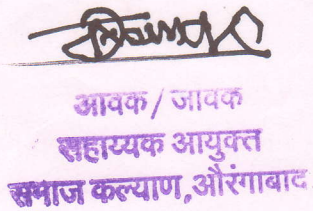 आवक / जावक
सहाय्यक आयुक्त
समाज कल्याण, औरंगाबाद